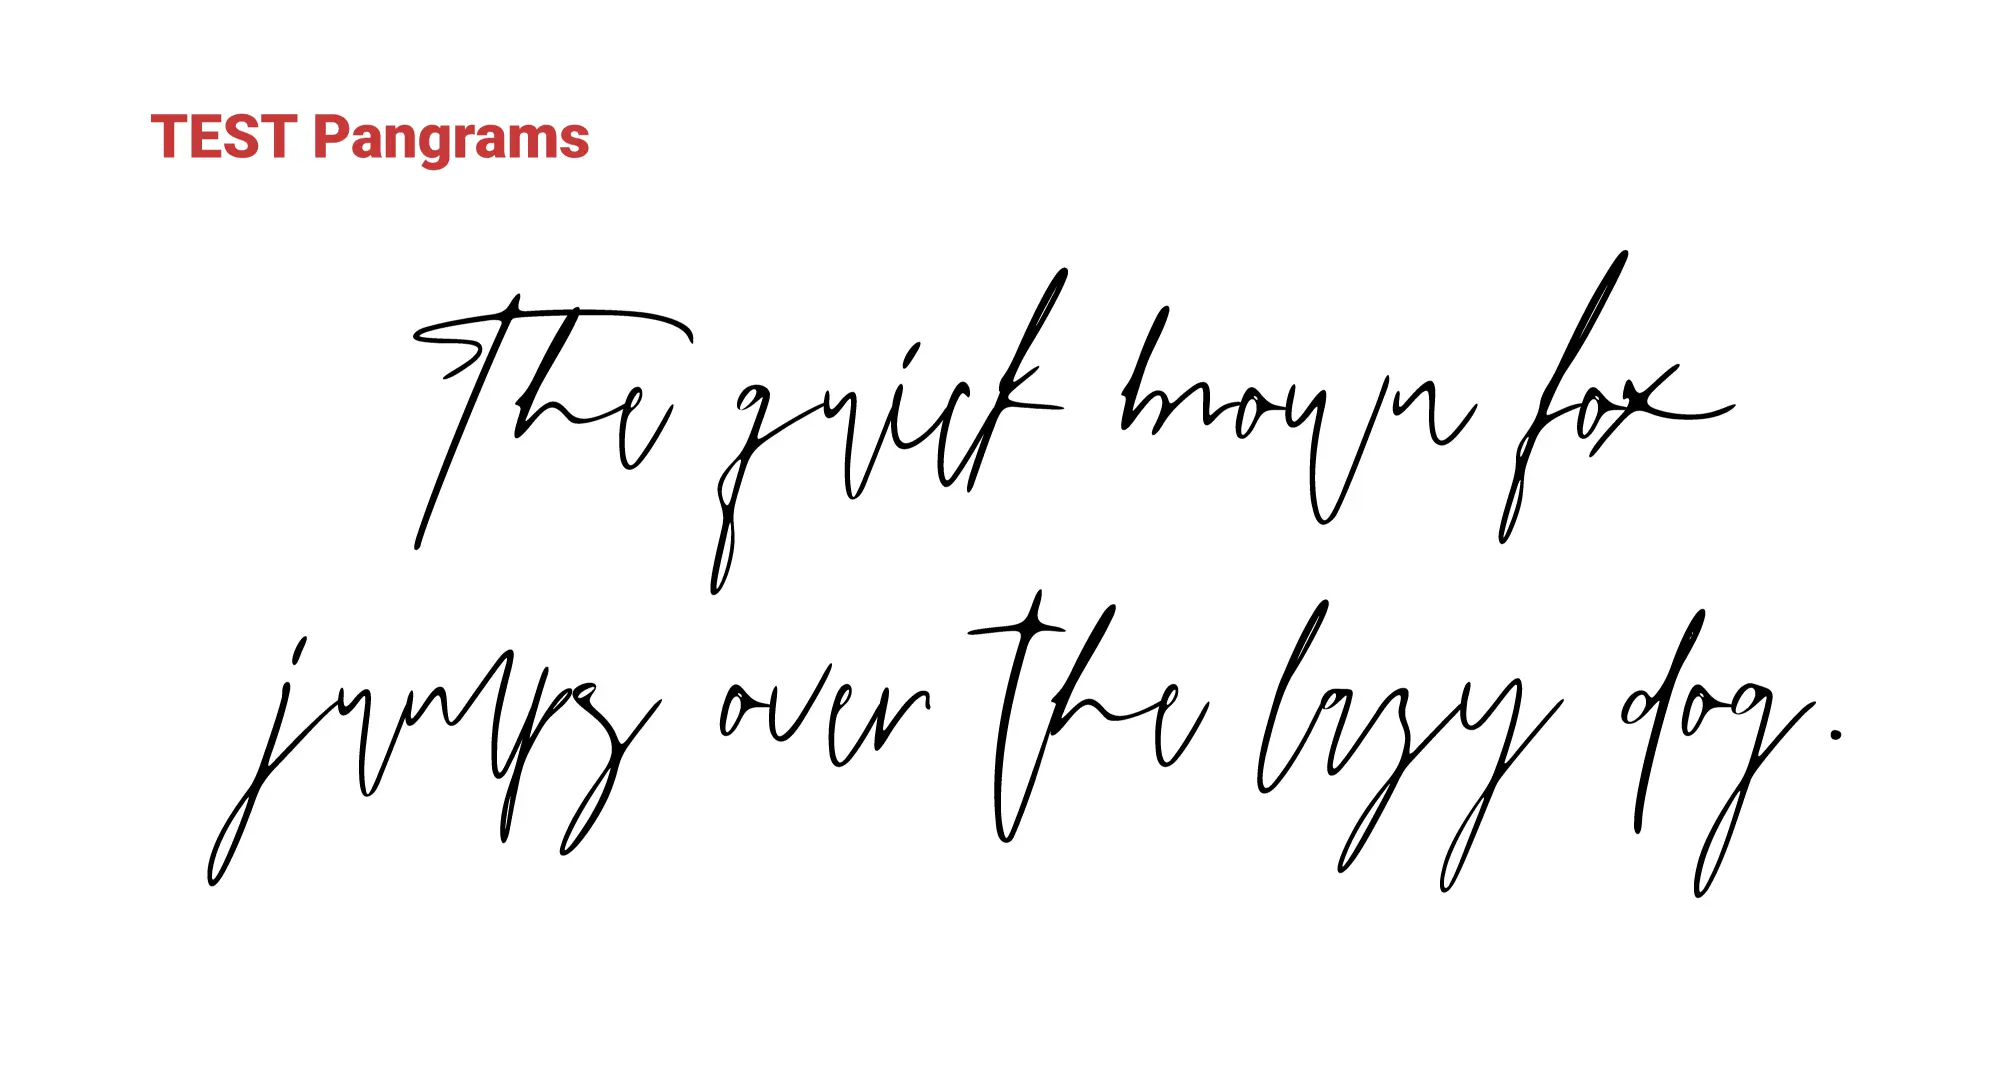 TEST Pangrams
The quick brown fox
jumps over the lazy dog.